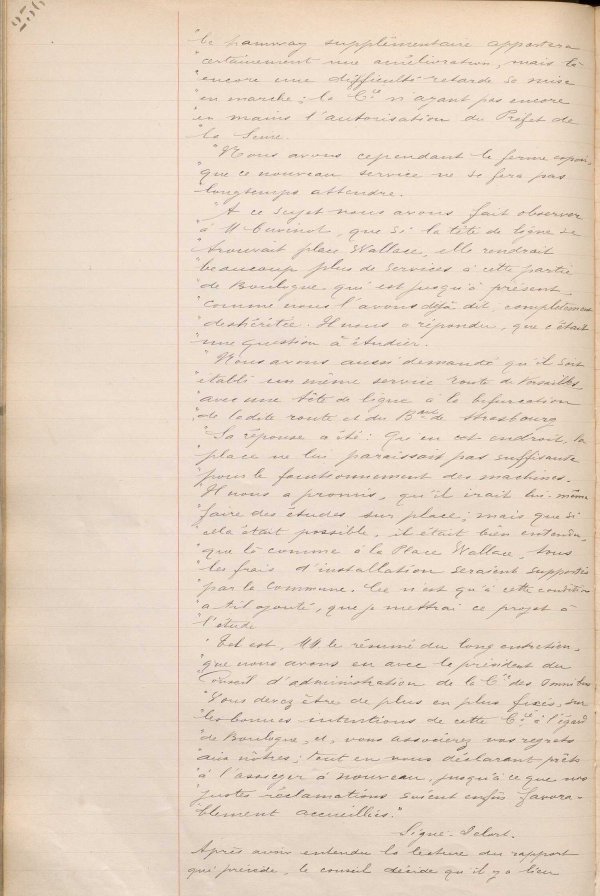 236
"le tramway supplémentaire apportera
"certainement une amélioration, mais là
"encore une difficulté retarde sa mise
"en marche ; la Cie n'ayant pas encore
"en mains l'autorisation du Préfet de
"la Seine.
"Nous avons cependant le ferme espoir,
"que ce nouveau service ne se fera pas
"longtemps attendre.
"A ce sujet nous avons fait observer
"à M Cuvinot, que si la tête de ligne se
"trouvait place Wallace, elle rendrait
"beaucoup plus de services à cette partie
"de Boulogne qui est jusqu'à présent
"comme nous l'avons déjà dit, complètement
"deshéritée. Il nous a répondu, que c'était
"une question à étudier.
"Nous avons aussi demandé qu'il soit
"établi un même service route de Versailles,
"avec une tête de ligne à la bifurcation
"de ladite route et du Bard de Strasbourg
"Sa réponse a été : Qu'en cet endroit, la
"place ne lui paraissait pas suffisante
"pour le fonctionnement des machines.
"Il nous a promis, qu'il irait lui-même
"faire des études sur place ; mais que si
"cela était possible, il était bien entendu,
"que là comme à la Place Wallace, tous
"les frais d'installation seraient supportés
"par la Commune. Ce n'est qu'à cette condition
"a-t-il ajouté, que je mettrai ce projet à
"l'étude
"Tel est, MM. le résumé du long entretien,
"que nous avons eu avec le président du
"Conseil d'administration de la Cie des Omnibus
"Vous devez être de plus en plus fixés, sur
"les bonnes intentions de cette Cie à l'égard
"de Boulogne, et, vous associerez vos regrets
"aux nôtres ; tout en vous déclarant prêts
"à l'assiéger à nouveau, jusqu'à ce que nos
"justes réclamations soient enfin favora-
"blement accueillies."
Signé :
Après avoir entendu la lecture du rapport
qui précède, le conseil décide qu'il y a lieu